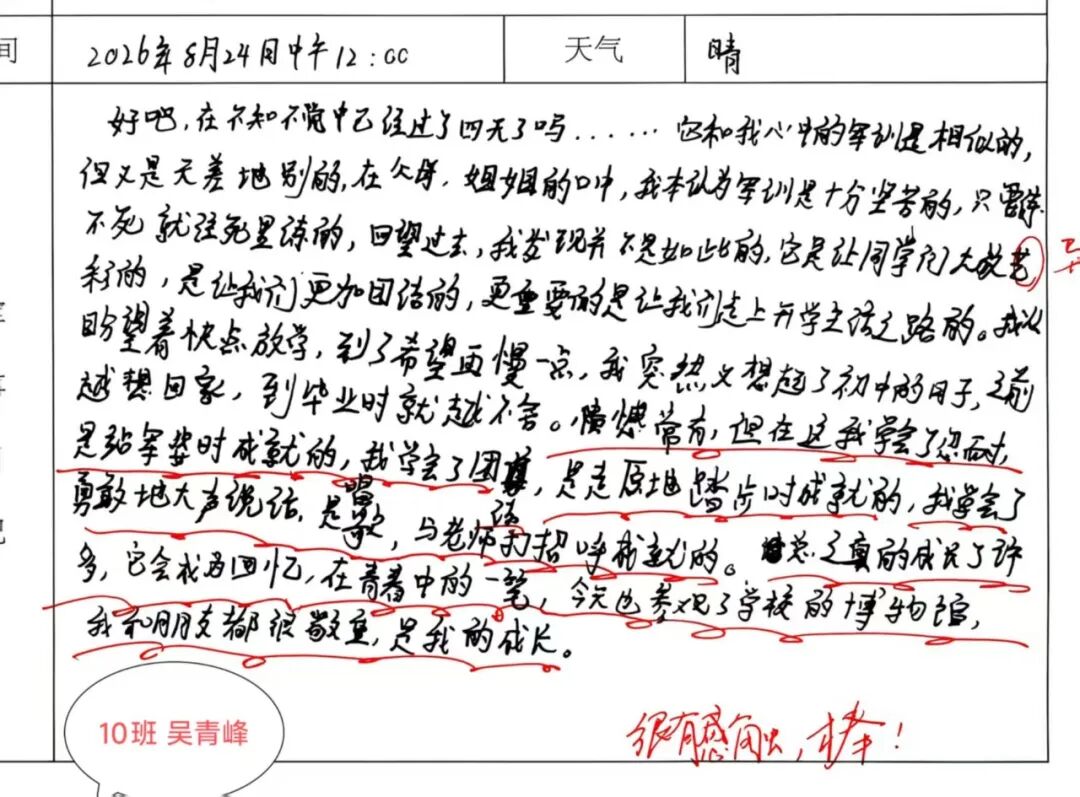 间 2026年8月24日中午12:00 天气 晴
好吧,在不知不觉中已经过了四天了吗……它和我心中的军训是相似的,
但又是天差地别的,在父母、姐姐的口中,我本认为军训是十分坚苦的,只要练
不死就往死里练的,回望过去,我发现并不是如此的,它是让同学们大放艺
彩的,是让我们更加团结的,更重要的是让我们走上开学生活之路的。我以
盼望着快点放学,到了希望再慢一点,我突然又想起了初中的日子,之前
越想回家,到毕业时就越不舍。陋燃常有,但在这我学会了忍耐,
是站军姿时成就的,我学会了团,是走原地踏步时成就的,我学会了
勇敢地大声说话,是唱歌,与老师打招呼成就的。总之真的成长了许
多,它会成为回忆,在青春中的一笔,今天也参观了学校的博物馆,
我和朋友都很敬重,是我的成长。
10班 吴青峰
很有感触,棒!